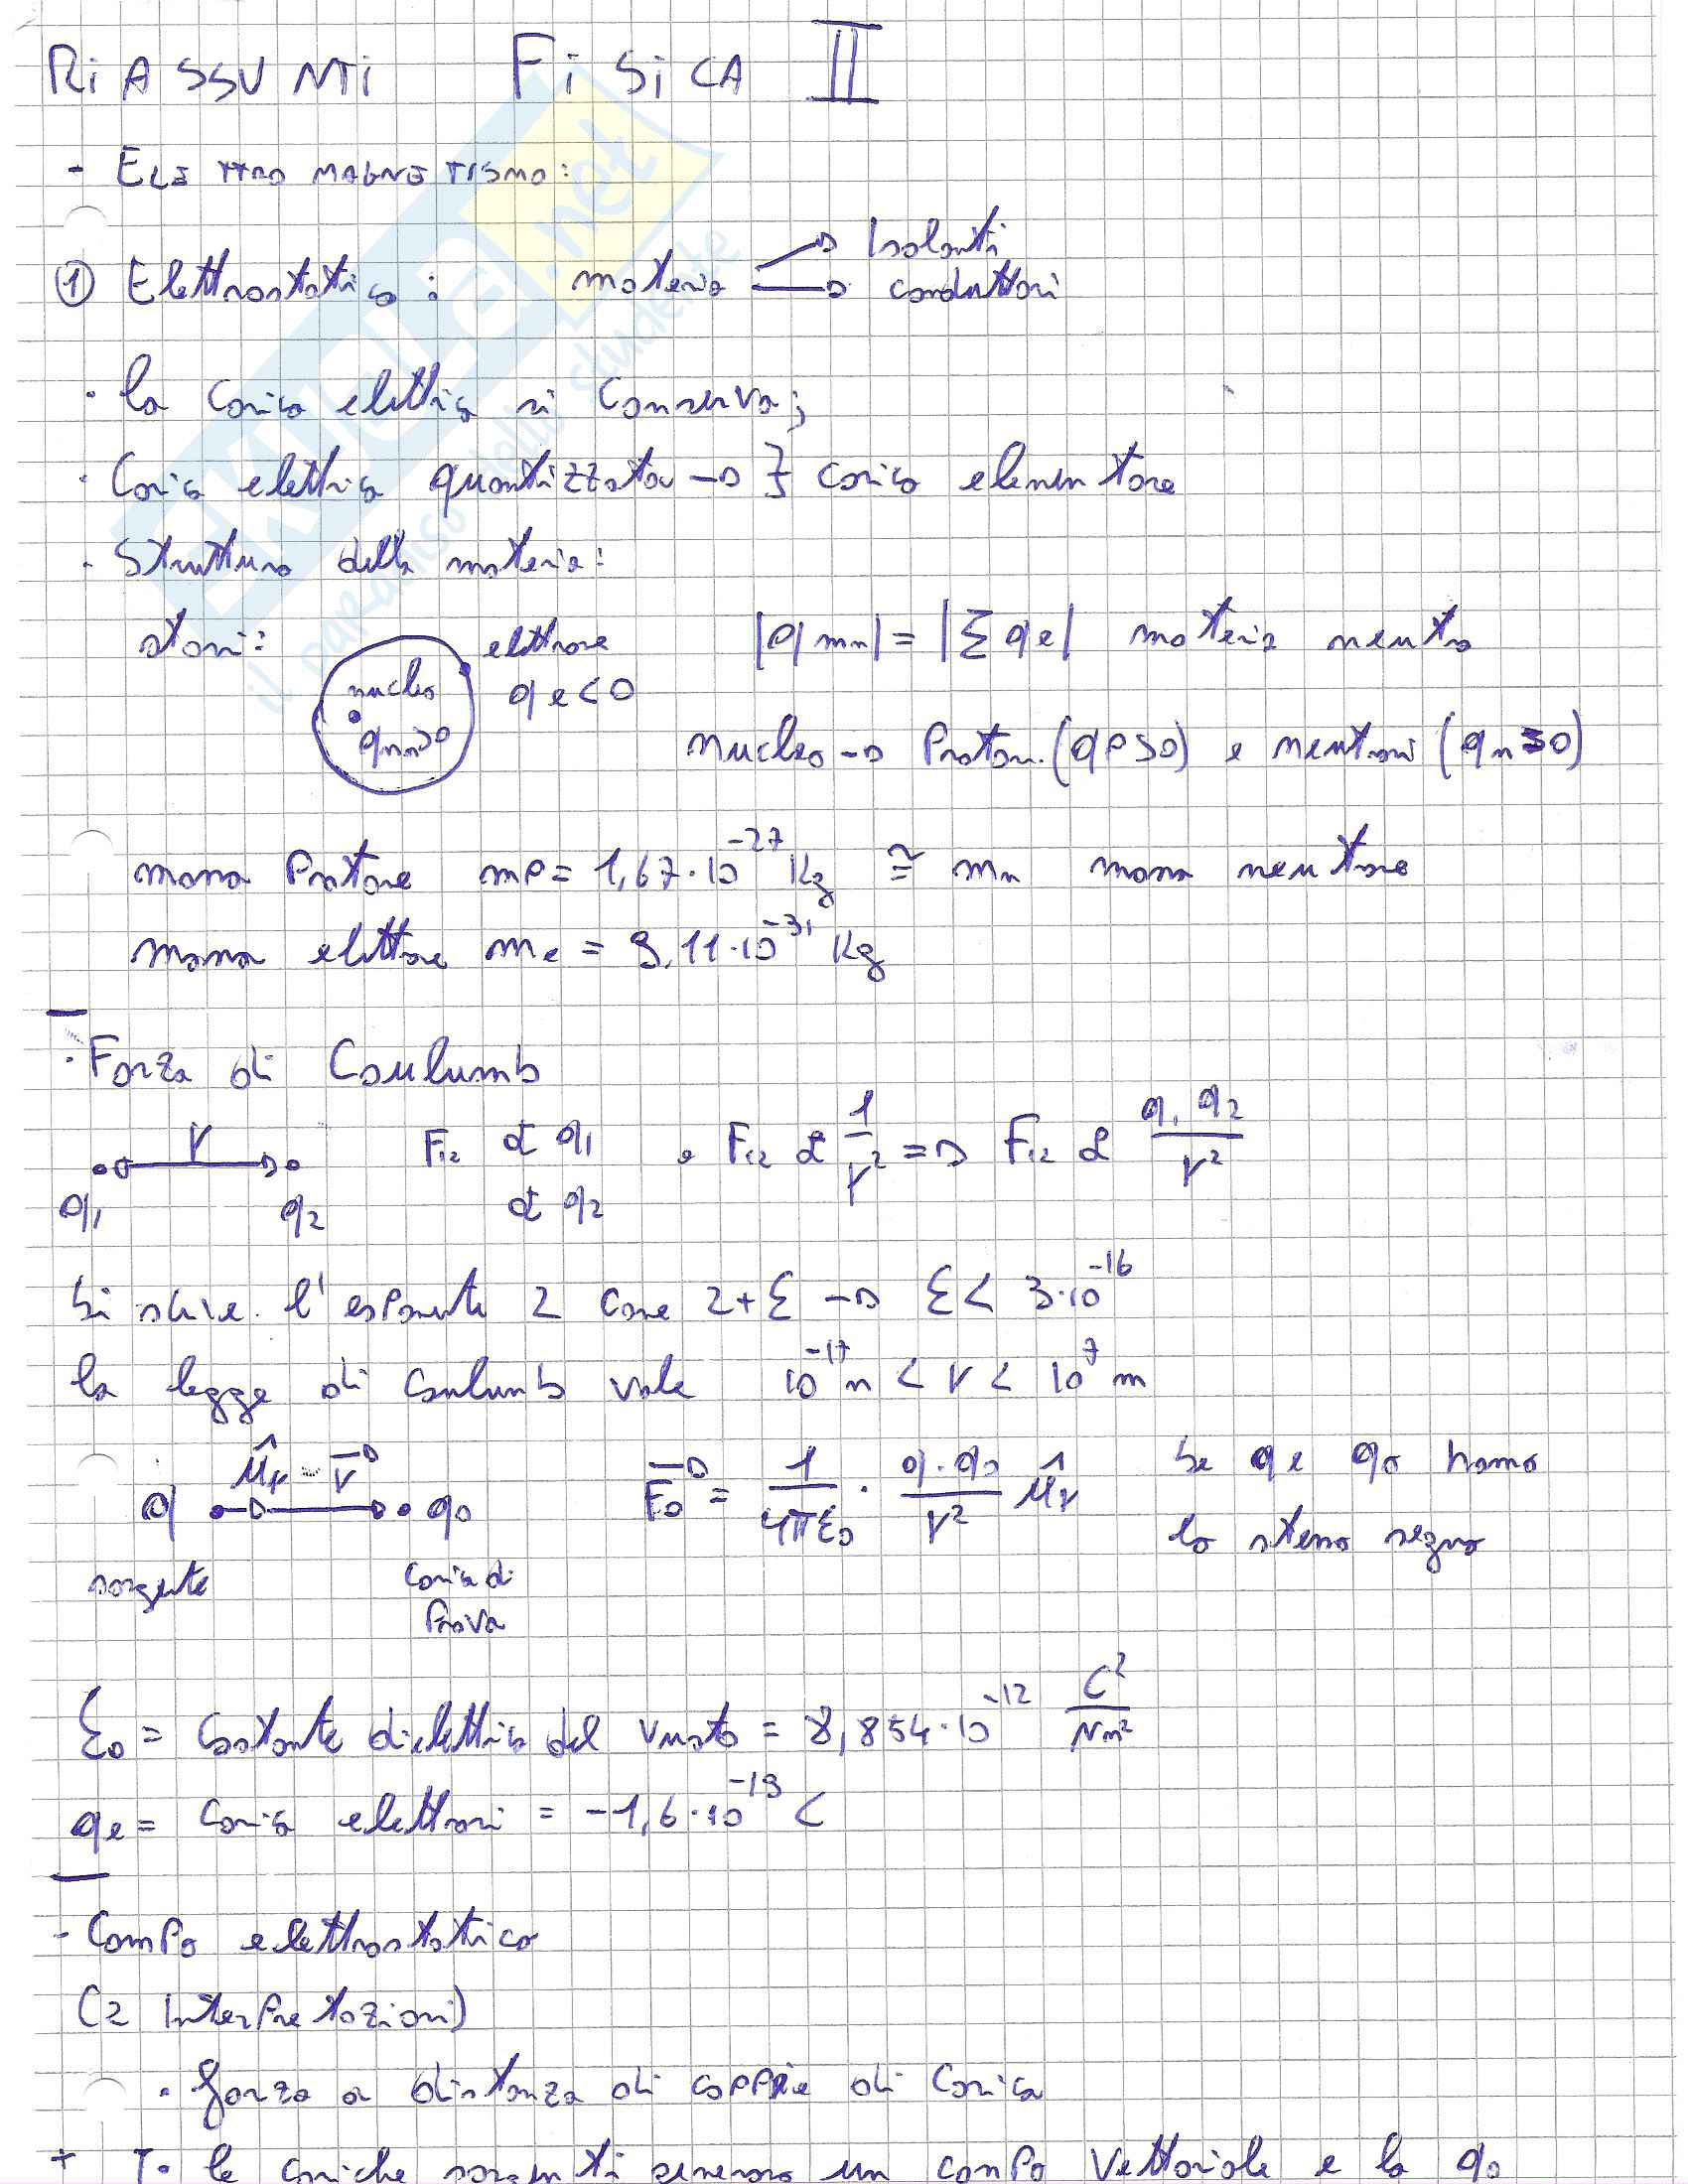 RiASSUNTi FiSiCA II
- ELETTROMAGNETISMO:
① Elettrostatica: materia → Isolanti
→ conduttori
· la carica elettrica si conserva;
· Carica elettrica quantizzata → } carica elementare
· Struttura della materia:
atomi: elettrone |q nu| = |Σ qe| materia neutra
nucleo qe<0
qnu>0
nucleo → Protoni (qp>0) e neutroni (qn=0)
massa Protone mp = 1,67·10⁻²⁷ Kg ≅ mn massa neutrone
massa elettrone me = 9,11·10⁻³¹ Kg
· Forza di Coulumb
r F₁₂ ∝ q₁ , F₁₂ ∝ 1/r² => F₁₂ ∝ q₁ q₂/r²
q₁ q₂ ∝ q₂
Si scrive l'esponente 2 come 2+ε → ε < 3·10⁻¹⁶
la legge di Coulumb vale 10⁻¹⁷ m < r < 10⁷ m
ûr r→
q q₀ F₀→ = 1/4πε₀ · q·q₀/r² ûr Se q e q₀ hanno
lo stesso segno
sorgente carica di
Prova
ε₀ = Costante dielettrica del vuoto = 8,854·10⁻¹² C²/Nm²
qe = carica elettroni = -1,6·10⁻¹⁹ C
- Campo elettrostatico
(2 InterPretazioni)
· forza a distanza di coppie di Carica
le cariche sorgenti generano un campo Vettoriale e la q₀
EXUEL.net
il paradiso dello studente